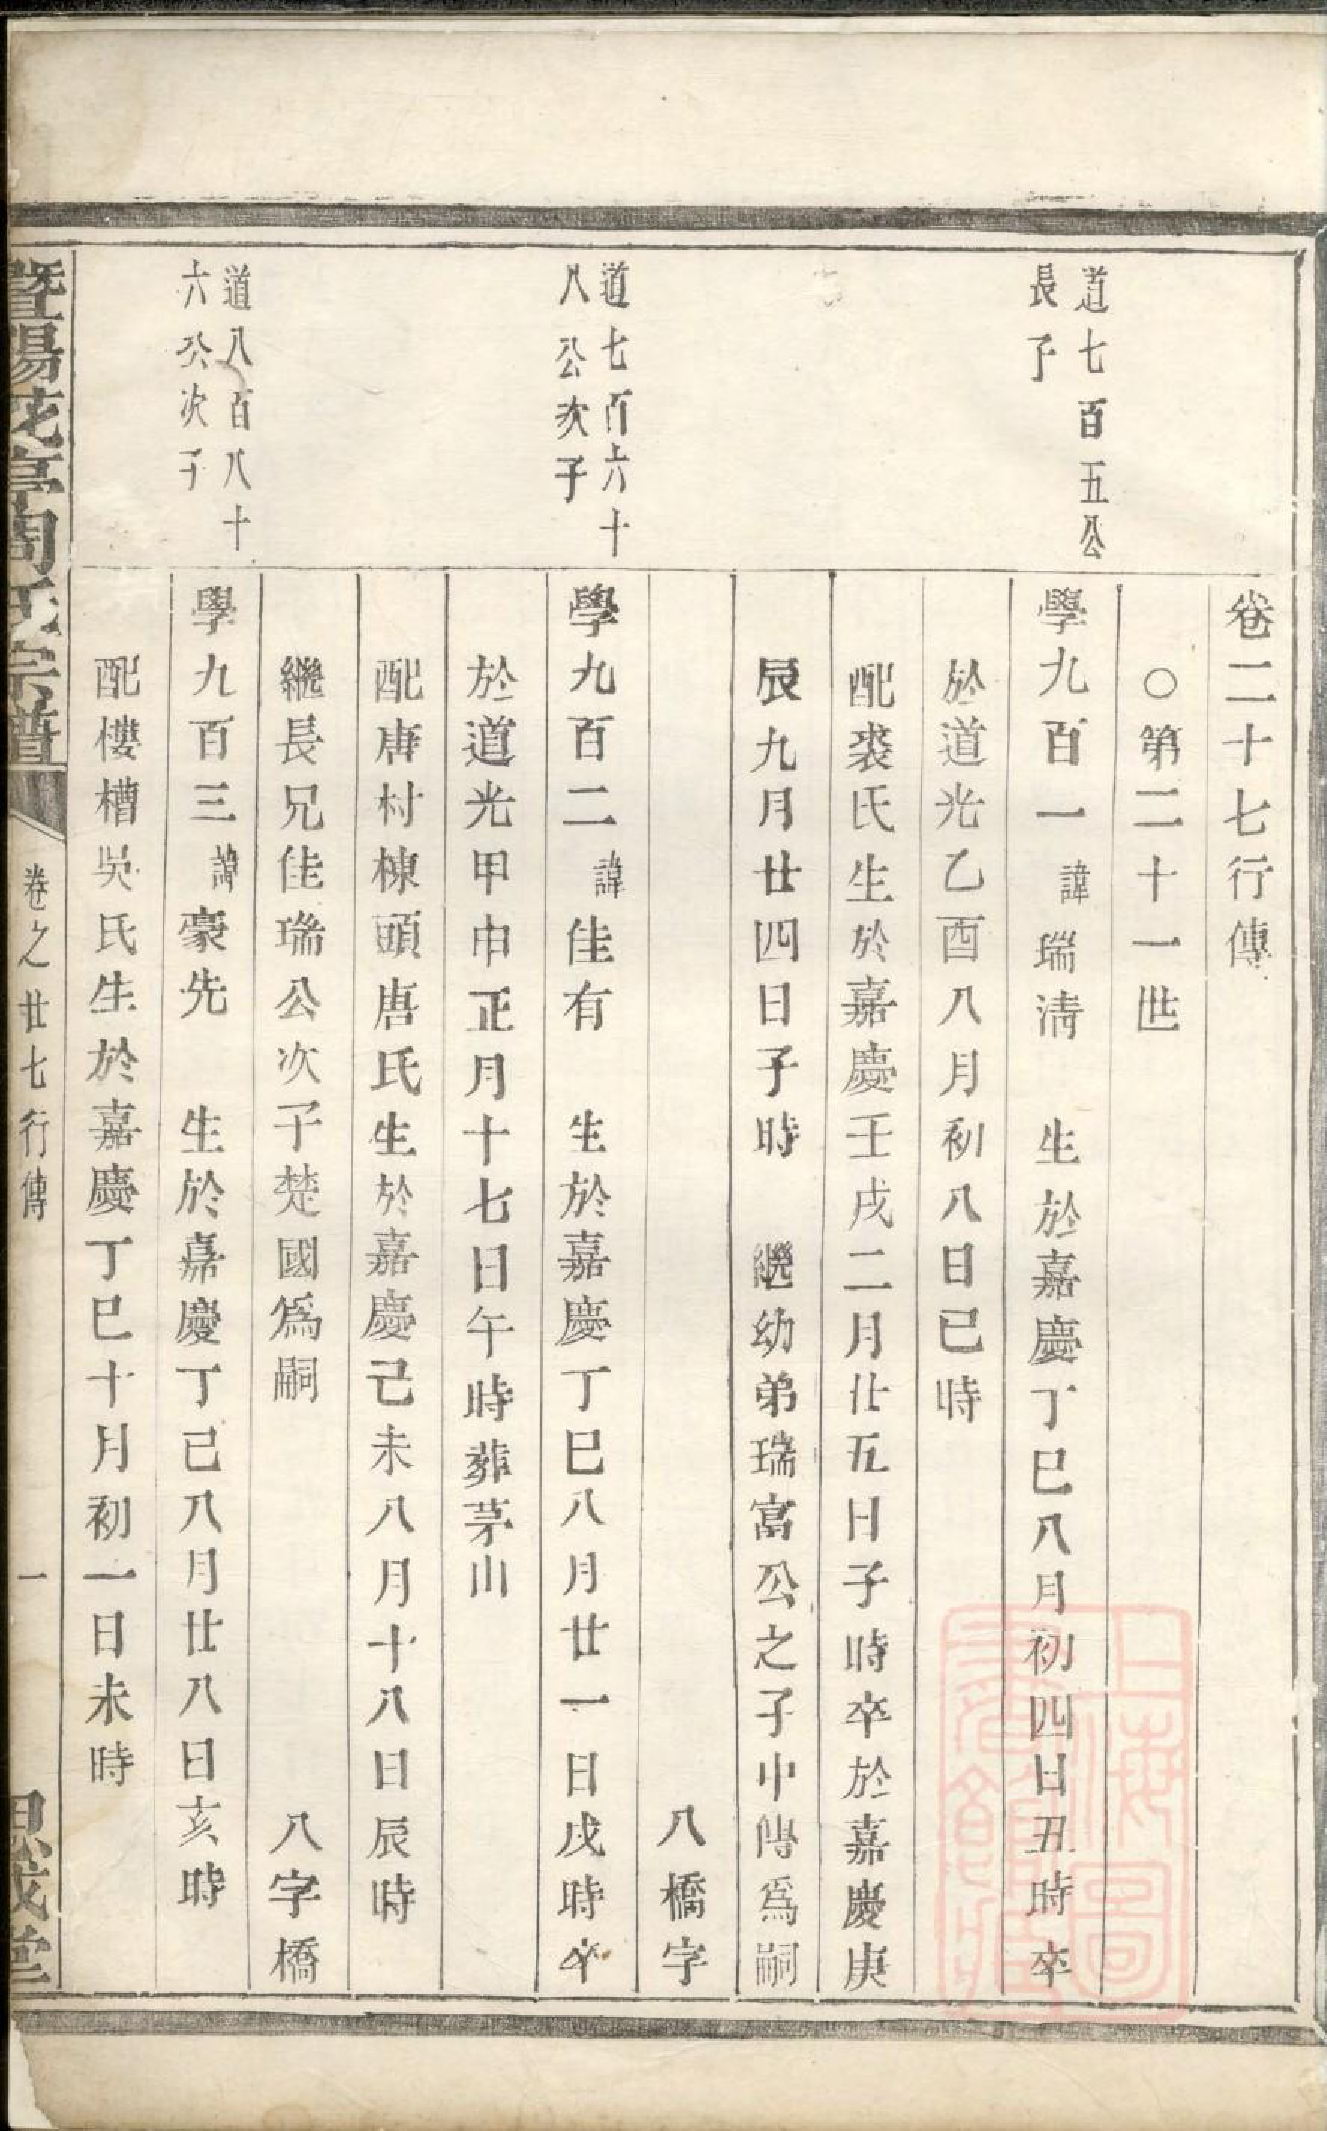 卷二十七行傳
○第二十一世
道七百五公
長子
學九百一諱瑞淸 生於嘉慶丁巳八月初四日丑時卒
於道光乙酉八月初八日巳時
配裘氏生於嘉慶壬戌二月廿五日子時卒於嘉慶庚
辰九月廿四日子時 繼幼弟瑞富公之子中傳爲嗣
八橋字
道七百六十
八公次子
學九百二諱佳有 生於嘉慶丁巳八月廿一日戌時卒
於道光甲申正月十七日午時葬茅山
配唐村棟頭唐氏生於嘉慶己未八月十八日辰時
繼長兄佳瑞公次子楚國爲嗣 八字橋
道八百八十
六公次子
學九百三諱豪先 生於嘉慶丁巳八月廿八日亥時
配樓槽吳氏生於嘉慶丁巳十月初一日未時
暨陽花亭周氏宗譜
卷之廿七行傳
一
思成堂
上海圖
書館藏